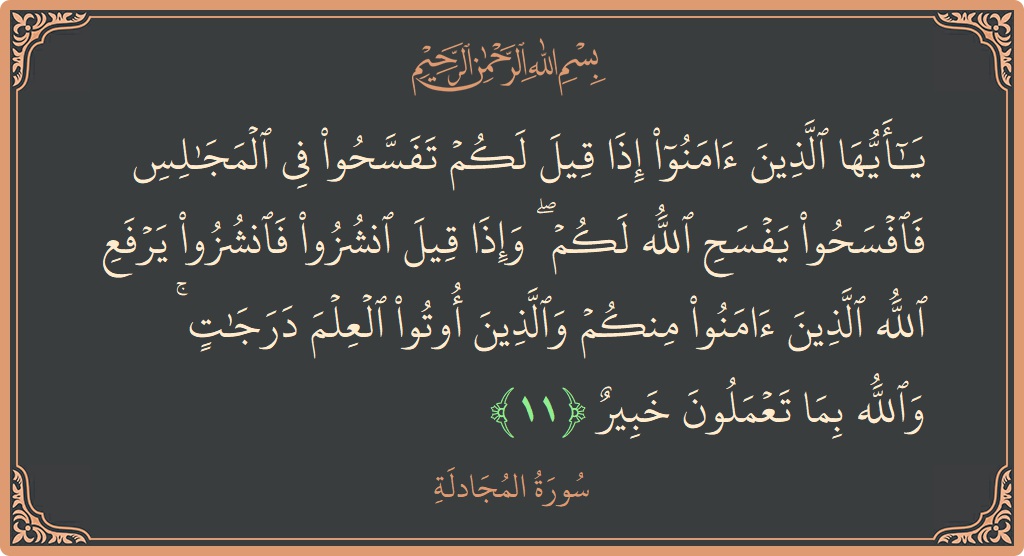 بِسْمِ اللهِ الرَّحْمٰنِ الرَّحِيْمِ
يَـٰٓأَيُّهَا ٱلَّذِينَ ءَامَنُوٓا۟ إِذَا قِيلَ لَكُمْ تَفَسَّحُوا۟ فِى ٱلْمَجَـٰلِسِ
فَٱفْسَحُوا۟ يَفْسَحِ ٱللَّهُ لَكُمْ ۖ وَإِذَا قِيلَ ٱنشُزُوا۟ فَٱنشُزُوا۟ يَرْفَعِ
ٱللَّهُ ٱلَّذِينَ ءَامَنُوا۟ مِنكُمْ وَٱلَّذِينَ أُوتُوا۟ ٱلْعِلْمَ دَرَجَـٰتٍ ۚ
وَٱللَّهُ بِمَا تَعْمَلُونَ خَبِيرٌ ﴿١١﴾
سُورَةُ المُجَادلَةِ